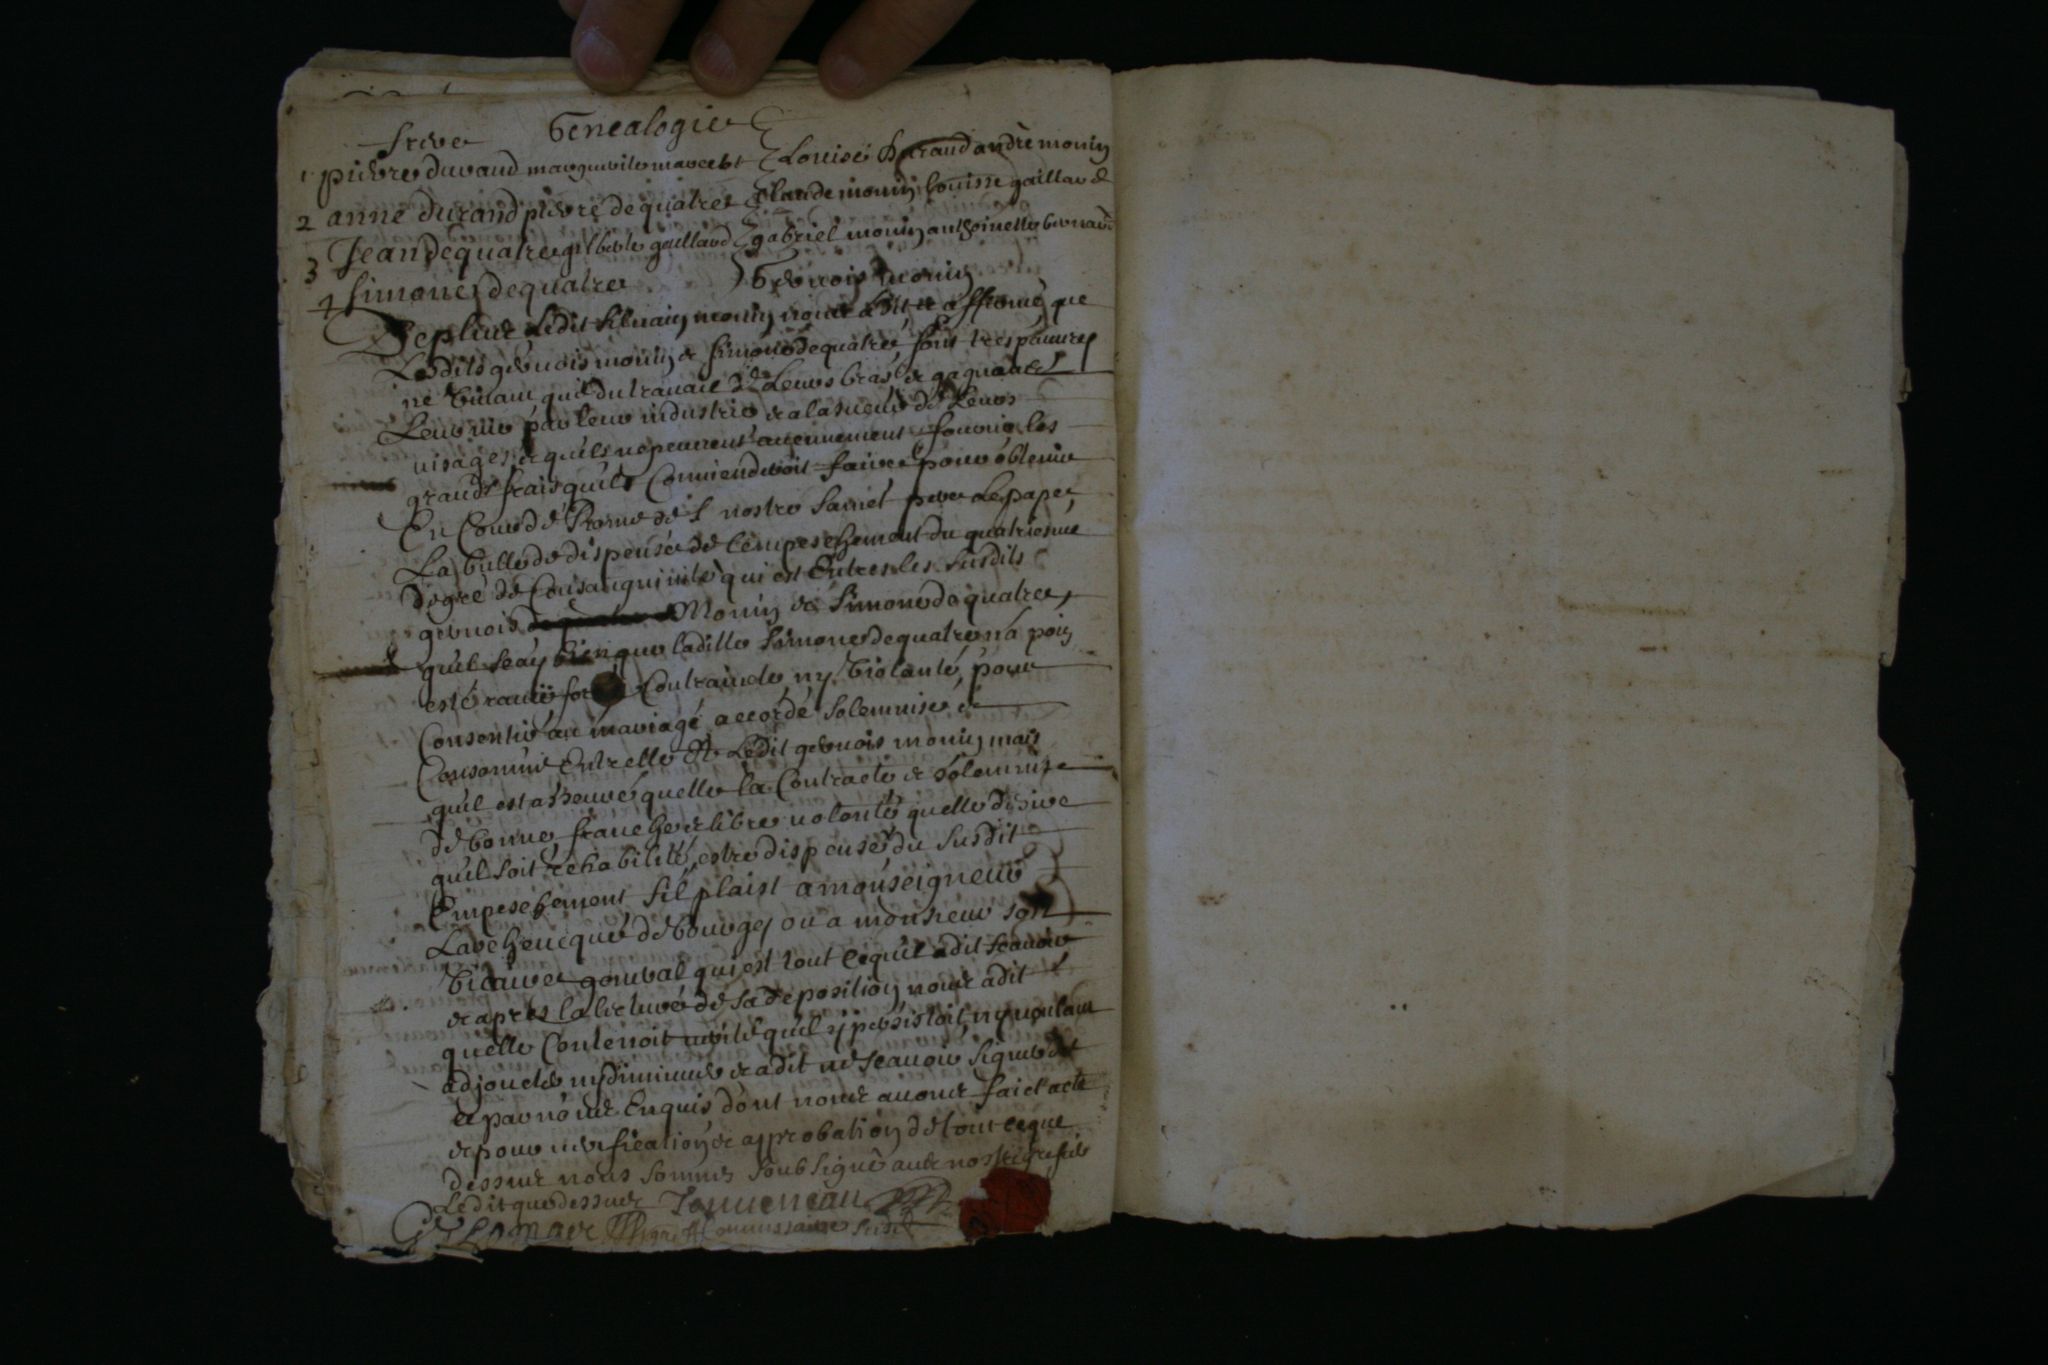 Genealogie
frere
1 pierre durand marguerite marcebt Louise durand andré monin
2 anne durand pierre de quatre Claude monin Louisse gaillard
3 Jean dequatre gilberte gaillard gabriel monin anthoinette bernard
4 simone dequatre Gervois monin
De plus ledit silvain monin nous a dit et affirmé que
Lesdits gervois monin et simone dequatre sont tres pauvres
ne vivant que du travail de Leurs bras et gagnant
Leur vie par leur industrie et a la sueur de Leurs
visages et quils ne peuvent aucunement fournir les
grands frais quil Conviendroit faire pour obtenir
En Cour de Rome de nostre sainct pere Le pape
La bulle de dispense de lempeschement du quatriesme
degré de Consanguinité qui est Entre les susdits
gervois Monin et simone de quatre,
quil scay bien que laditte simone dequatre na poin
esté ravie Contrainte ny violanté, pour
Consentir au mariage accordé solemnisé et
Consommé Entrelle et Ledit gervois monin mais
quil est asseuré quelle la Contracté et solemnisé
de bonne franche et libre volonté quelle desire
quil soit rehabilité, estre dispensé du susdit
Empeschement sil plaist a monseigneur
Larchevecque de bourges ou a monsieur son
vicaire general qui est tout ce quil a dit scavoir
et apres la lecture de sa deposition nous a dit
quelle Contenoit verité quil y persistoit ny voulant
adjouter ny diminuer et a dit ne scavoir signer de
ce par nous Enquis dont nous avons faict acte
et pour verification et approbation de tout ce que
dessus nous sommes soubsigné avec nostre greffier
Ledit que dessus
Commissaire susd